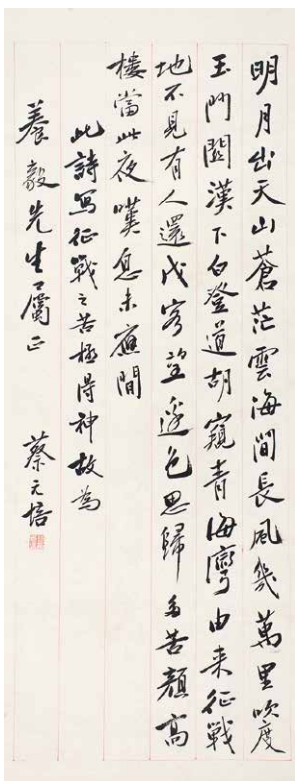 明月出天山蒼茫雲海間長風幾萬里吹度
玉門關漢下白登道胡窺青海灣由来征戰
地不見有人還戍客望邊色思歸多苦顏高
樓當此夜嘆息未應間
此詩寫征戰之苦極得神故為
養毅先生屬正
蔡元培